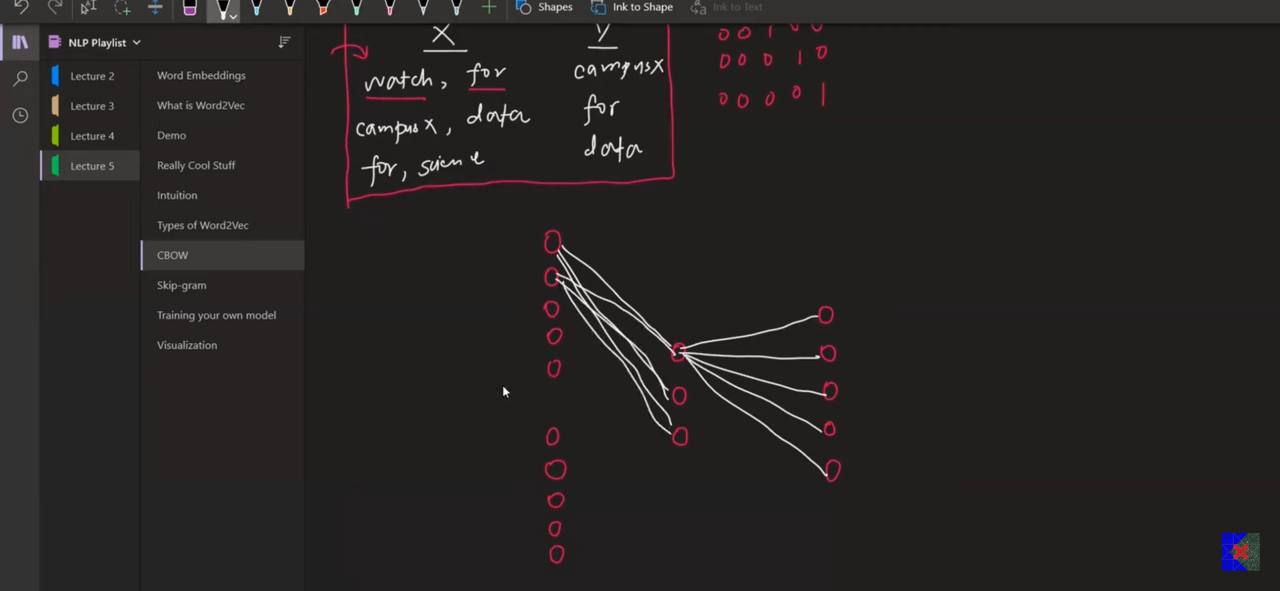 Shapes
Ink to Shape
Ink to Text
NLP Playlist
Lecture 2
Lecture 3
Lecture 4
Lecture 5
Word Embeddings
What is Word2Vec
Demo
Really Cool Stuff
Intuition
Types of Word2Vec
CBOW
Skip-gram
Training your own model
Visualization
X Y
watch, for campusx
campusx, data for
for, science data
0 0 1 0 0
0 0 0 1 0
0 0 0 0 1